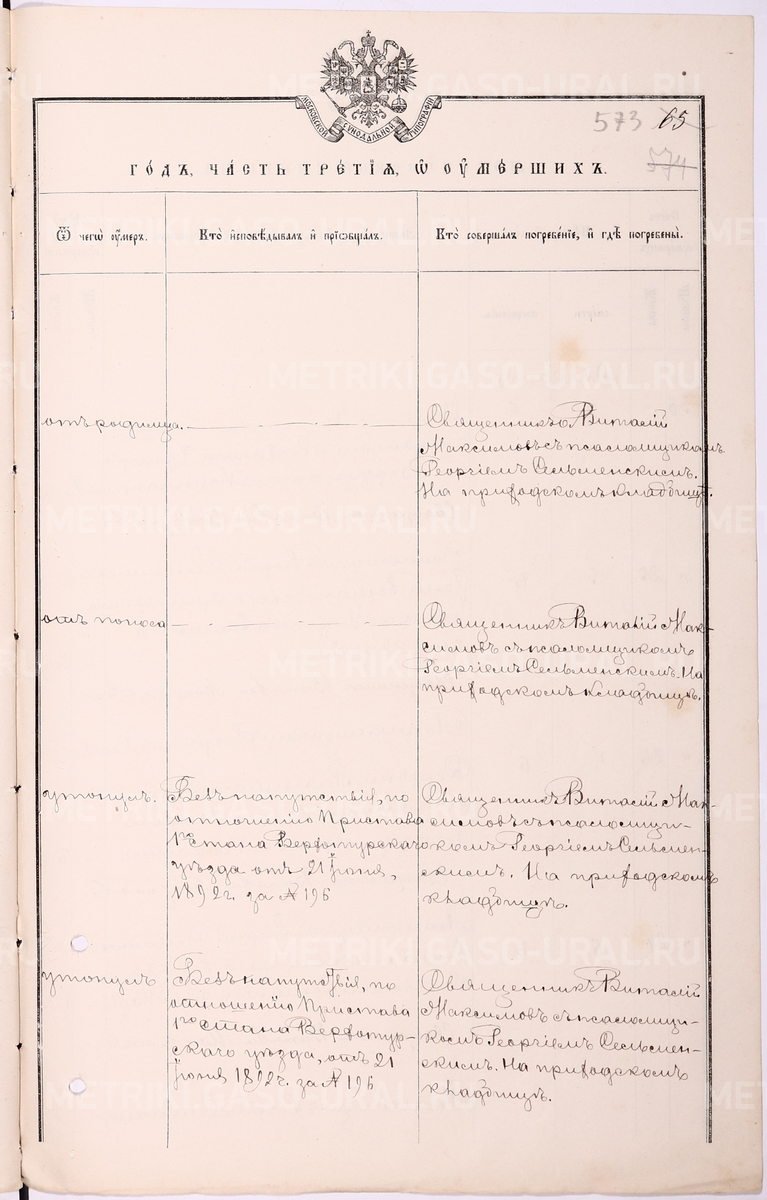 METRIKI.GASO-URAL.RU
МОСКОВСКОЙ СѴНОДАЛЬНОЙ ТИПОГРАФІИ
573 65
574
ГО́ДЪ, ЧА́СТЬ ТРЕ́ТІѦ, Ѽ ОУ҆МЕ́РШИХЪ.
Ѿ чегѡ̀ оу҆́меръ.
Кто̀ и҆сповѣ́дывалъ и҆ прїѡбща́лъ.
Кто̀ соверша́лъ погребе́нїе, и҆ гдѣ̀ погребены̀.
отъ родимца.
Священникъ Виталій
Максимовъ съ псаломщикомъ
Георгіемъ Сельменскимъ.
На приходскомъ кладбищѣ.
отъ поноса
Священникъ Виталій Мак-
симовъ съ псаломщикомъ
Георгіемъ Сельменскимъ. На
приходскомъ кладбищѣ.
утонулъ.
Безъ напутствія, по
отношенію Пристава
1го Стана Верхотурскаго
уѣзда отъ 21 Іюня,
1892 г. за № 196
Священникъ Виталій Мак-
симовъ съ псаломщи-
комъ Георгіемъ Сельмен-
скимъ. На приходскомъ
кладбищѣ.
утонулъ
Безъ напутствія, по
отношенію Пристава
1го Стана Верхотур-
скаго уѣзда, отъ 21
Іюня 1892 г. за № 196
Священникъ Виталій
Максимовъ съ псаломщи-
комъ Георгіемъ Сельмен-
скимъ. На приходскомъ
кладбищѣ.